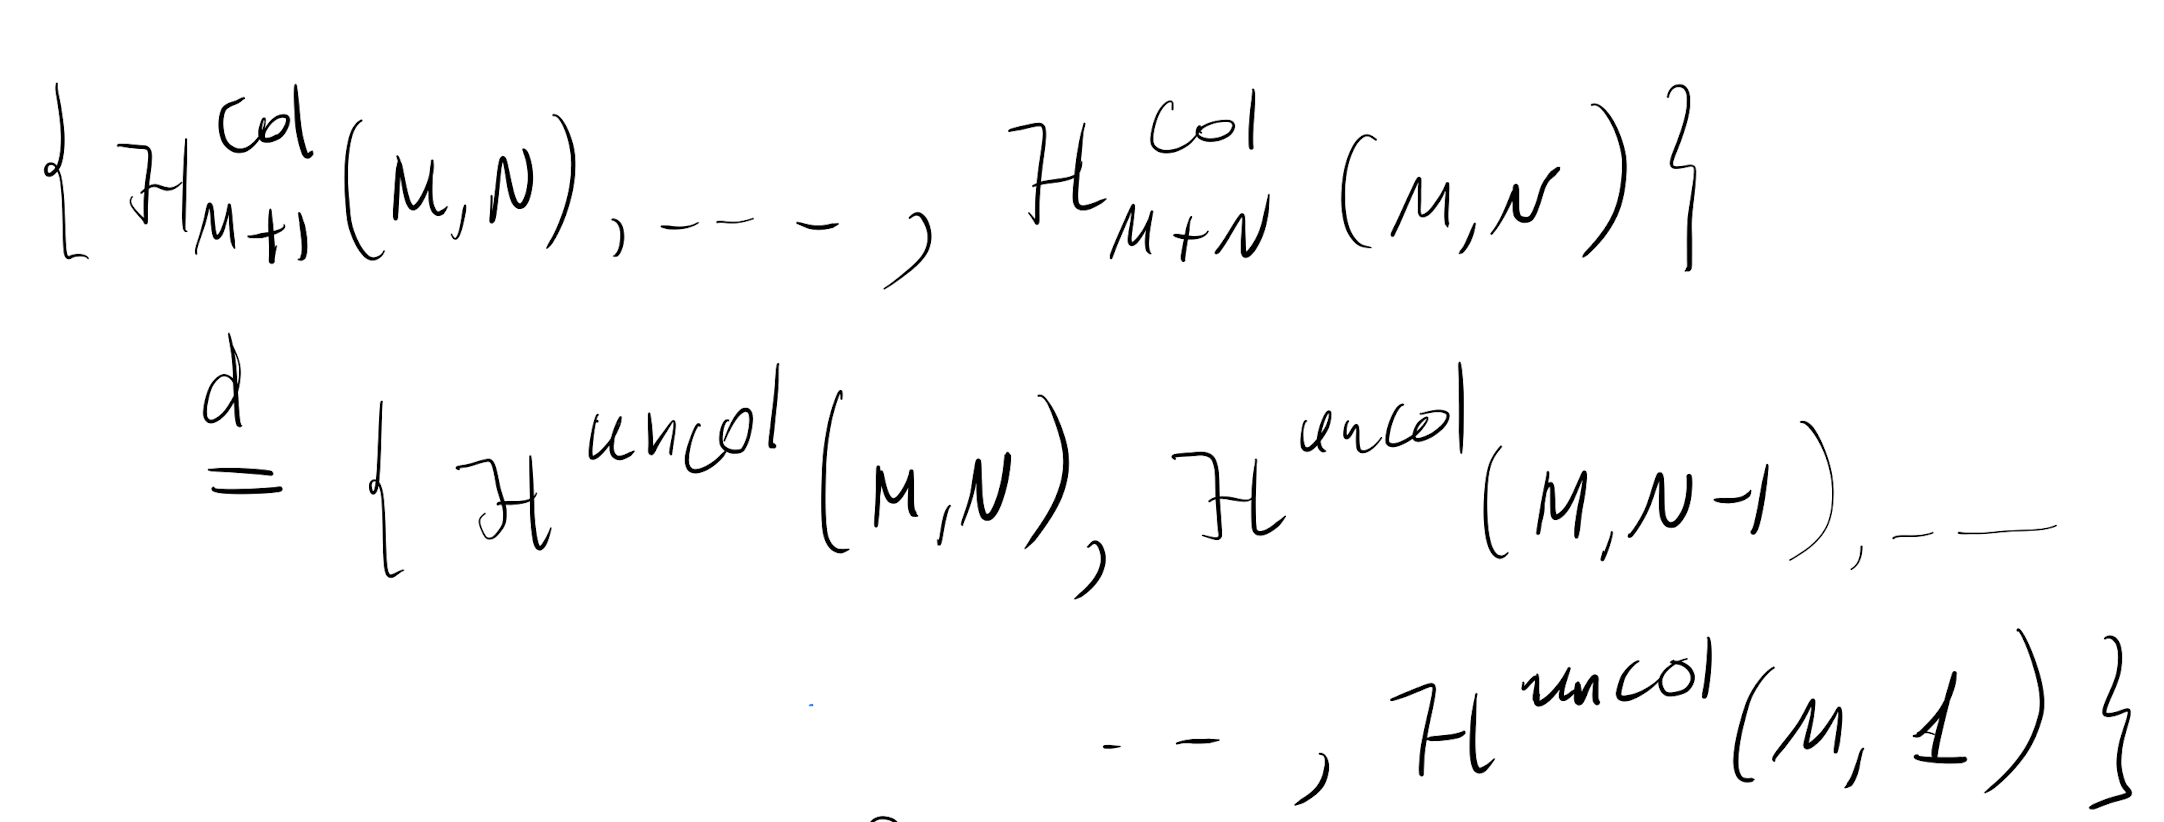 {ℋ^{col}_{M+1}(M,N), ---, ℋ^{col}_{M+N}(M,N)}
d= {ℋ^{uncol}(M,N), ℋ^{uncol}(M,N-1), --
--, ℋ^{uncol}(M,1)}